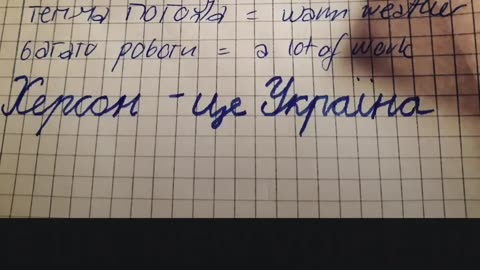 тепла погода = warm weather
багато роботи = a lot of work
Херсон - це Україна